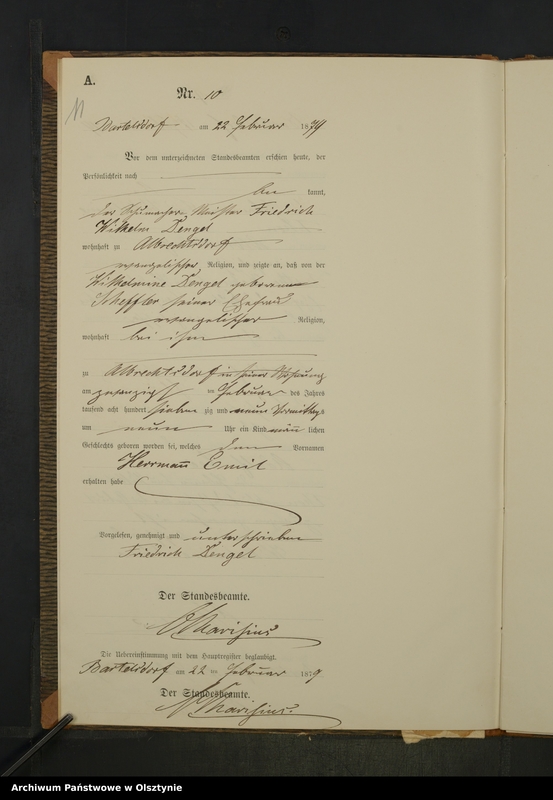 A.
Nr. 10
11
Bartelsdorf am 22 Februar 1879
Vor dem unterzeichneten Standesbeamten erschien heute, der
Persönlichkeit nach
be kannt,
der Schumacher Meister Friedrich
Wilhelm Dengel
wohnhaft zu Albrechtsdorf
evangelischer Religion, und zeigte an, daß von der
Wilhelmine Dengel geborenen
Scheffler seiner Ehefrau
evangelischer Religion,
wohnhaft bei ihm
zu Albrechtsdorf in seiner Wohnung
am zwanzigst en Februar des Jahres
tausend acht hundert sieben zig und neun Vormittags
um neun Uhr ein Kind männ lichen
Geschlechts geboren worden sei, welches den Vornamen
Herrmann Emil
erhalten habe
Vorgelesen, genehmigt und unterschrieben
Friedrich Dengel
Der Standesbeamte.
Die Uebereinstimmung mit dem Hauptregister beglaubigt.
Bartelsdorf am 22 ten Februar 1879
Der Standesbeamte.
Archiwum Państwowe w Olsztynie